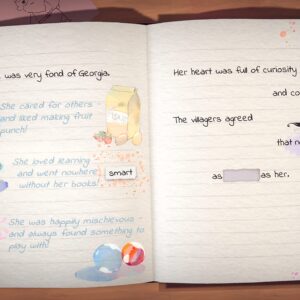 was very fond of Georgia.
She cared for others
and liked making fruit
punch!
She loved learning
and went nowhere
without her books!
smart
She was happily mischievous
and always found something to
play with!
Her heart was full of curiosity
and co
The villagers agreed
that no
as as her.